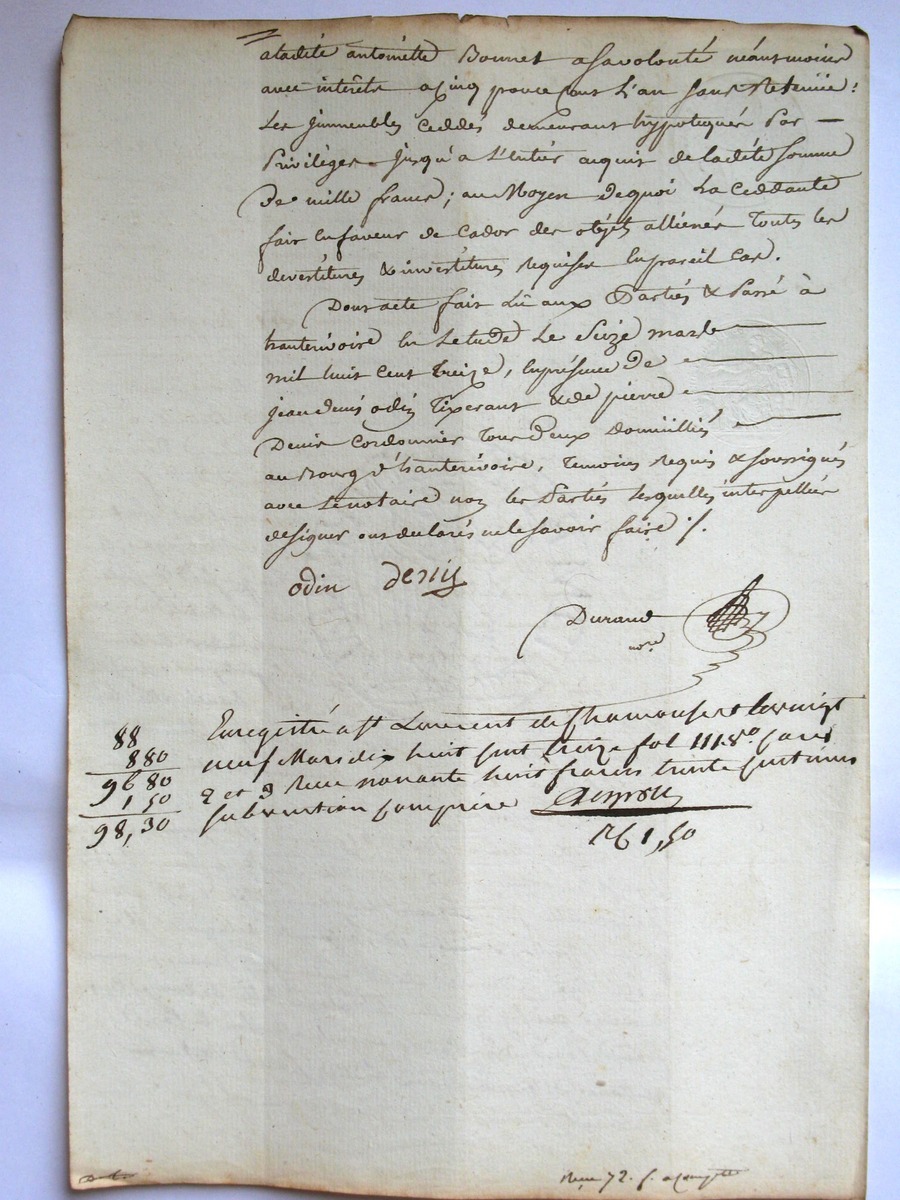 aladité antoinette Bonnet asavolonté néantmoins
avec intérêts acinq pour cent L'an sans Retenüe:
Les Immeubles Ceddés demeurant hypotequés Par —
Privilège Jusqu'a L'entier acquit deladité Somme
De mille francs; au Moyen dequoi La Ceddante
fait En faveur de Cador des objets alliénés Toutes les
devestitures & investitures Requises En pareil Cas.
Dont acte fait Lû aux Partiés & Passé à
hauterivoire En Letude Le Seize mars
mil huit Cent Treize, En présence de
Jean denis odin Tixerant & de pierre
Denis Cordonnier Tous Deux Domiciliés
au Bourg d'hauterivoire, Temoins Requis & soussignés
avec Lenotaire non les Partiés lesquelles interpellées
designer ont declarés ne le savoir faire ./.
odin denis
Durand
nore
Enregistré a St Laurent de Chamousset le vingt
neuf Mars dix huit cent treize fol 111 Ro Cases
2 et 3 Recu nonante huit francs trente centimes
subvention comprise
88
880
9680
150
98,30
R 1,50